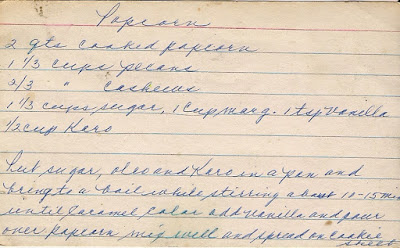 Popcorn
2 qts cooked popcorn
1 1/3 cups pecans
2/3 " cashews
1 1/3 cups sugar, 1 cup marg. 1 tsp Vanilla
1/2 cup Karo
Put sugar, oleo and Karo in a pan and
bring to a boil while stirring about 10-15 min
until caramel color add vanilla and pour
over popcorn mix well and spread on cookie
sheet